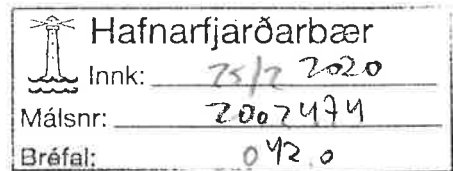 Hafnarfjarðarbær
Innk: 25/2 2020
Málsnr: 2002474
Bréfal: 042.0